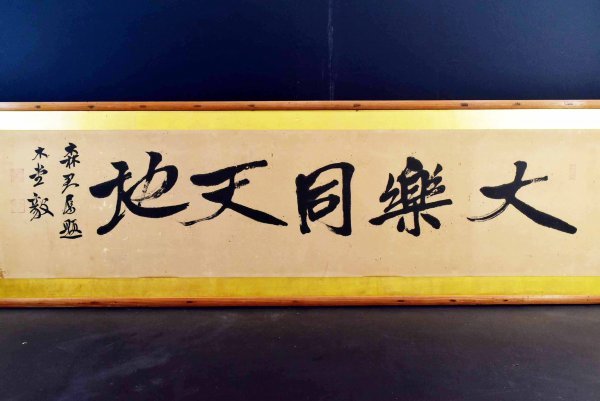 大樂同天地
森君属題
木堂毅